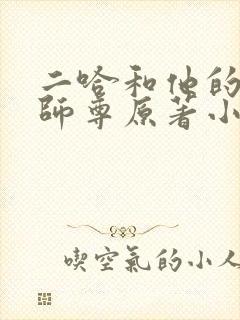 二哈和他的
師尊原著小
喫空氣的小人